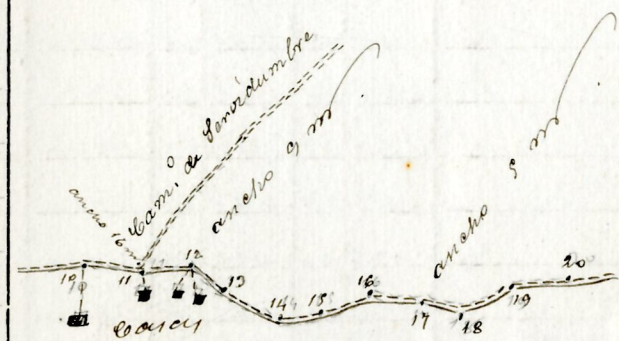 Camº de Servidumbre
ancho 9 m
ancho 9 m
ancho 16 m
10 11 12 13 14 15 16 17 18 19 20
Casas